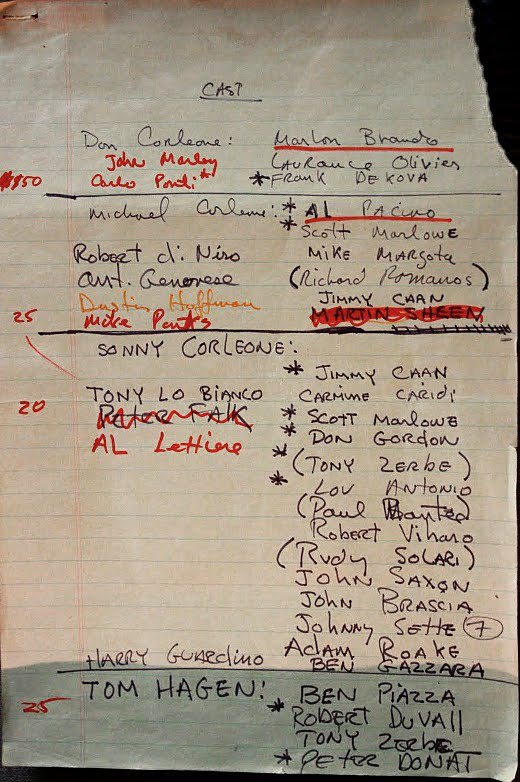 CAST
Don Corleone: Marlon Brando
John Marley Laurance Olivier
150 Carlo Ponti * * FRANK DEKOVA
Michael Corleone: * AL PACINO
* Scott MARLOWE
Robert di Niro MIKE MARGOTA
Ant. Genovese (Richard Romanos)
Dustin Hoffman JIMMY CAAN
25 Mike Parks MARTIN SHEEN
SONNY CORLEONE:
* JIMMY CAAN
TONY LO BIANCO CARMINE CARIDI
20 Peter FALK * SCOTT MARLOWE
AL Lettiere * DON GORDON
* (TONY ZERBE)
* LOU ANTONIO
(Paul)
Robert Viharo
(RUDY SOLARI)
JOHN SAXON
JOHN BRASCIA
Johnny SETTE 7
Adam ROAKE
HARRY GUARDINO BEN GAZZARA
TOM HAGEN: BEN PIAZZA
25 * ROBERT DUVALL
TONY ZERBE
* PETER DONAT